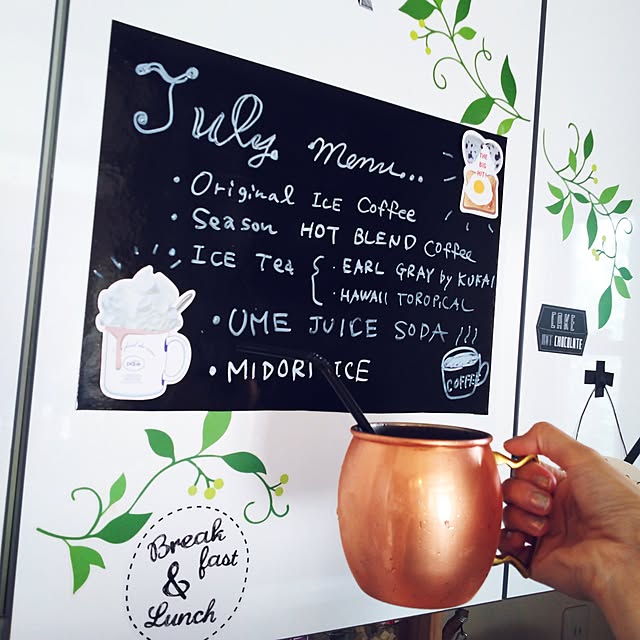 July Menu...
THE
BIG
HIT!
• Original ICE Coffee
• Season HOT BLEND Coffee
• ICE Tea { • EARL GRAY by KUKAI
• HAWAII TOROPICAL
• UME JUICE SODA !!!
• MIDORI ICE
COFFEE
CAKE
CHOCOLATE
Break
fast
&
Lunch